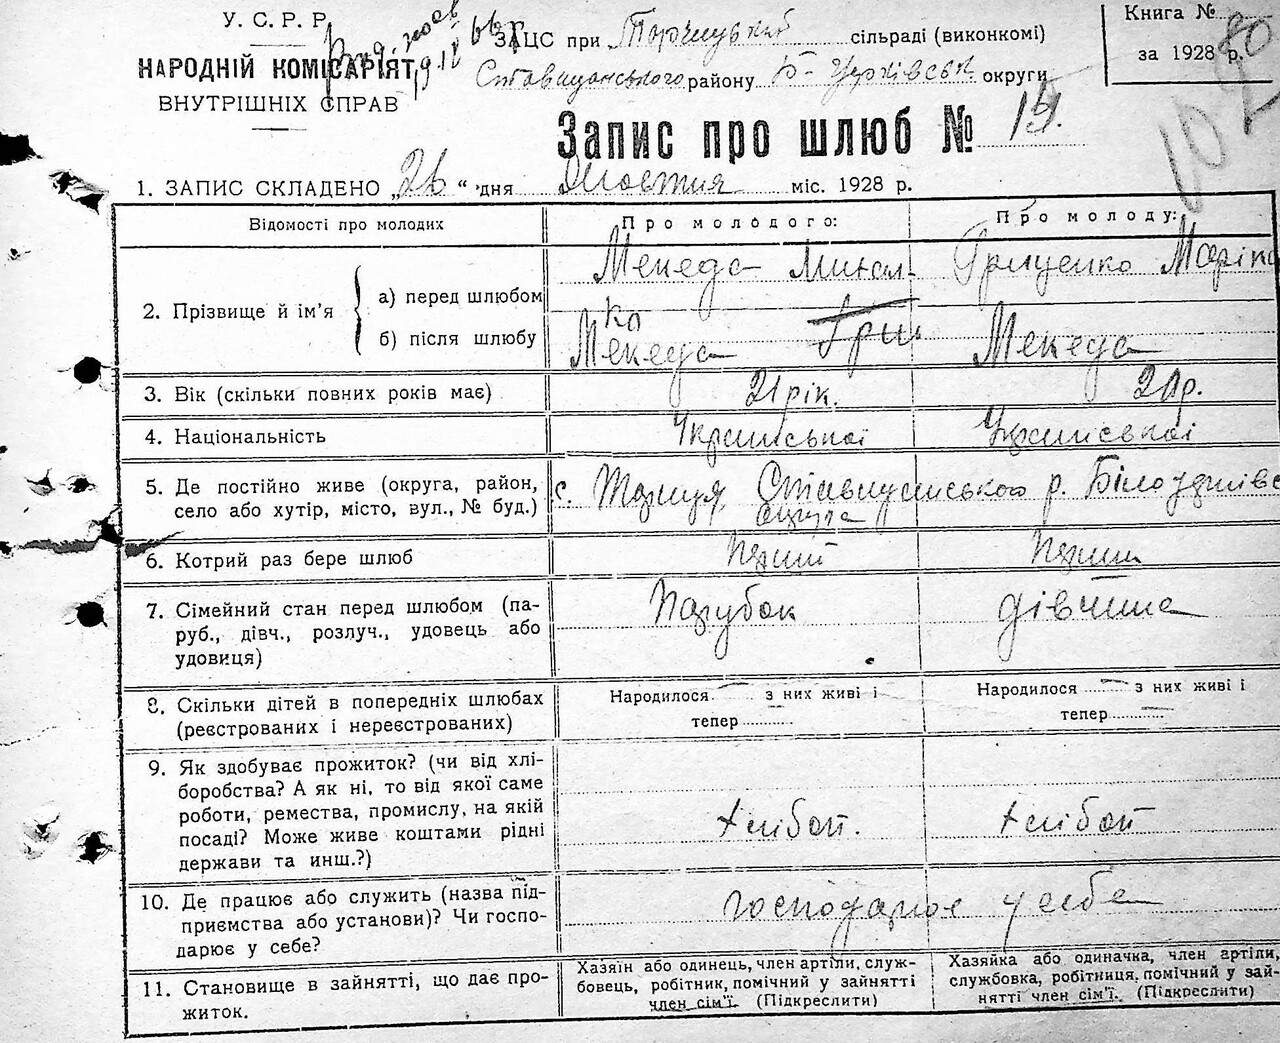 У. С. Р. Р.
НАРОДНІЙ КОМІСАРІЯТ
ВНУТРІШНІХ СПРАВ
ЗАЦС при сільраді (виконкомі)
Ставищанського району Б-Церківськ округи
Книга №
за 1928 р.
Запис про шлюб № 
1. ЗАПИС СКЛАДЕНО „26“ дня Жовтня міс. 1928 р.
Відомості про молодих
Про молодого:
Про молоду:
2. Прізвище й ім’я
а) перед шлюбом
б) після шлюбу
Мекеда Михал-
ко
Мекеда Гри
Гриценко Маріка
Мекеда
3. Вік (скільки повних років має)
21 рік.
20р.
4. Національність
Української
Української
5. Де постійно живе (округа, район,
село або хутір, місто, вул., № буд.)
с. Ставищанського р. Білоцерківс
округа
6. Котрий раз бере шлюб
перший
перший
7. Сімейний стан перед шлюбом (па-
руб., дівч., розлуч., удовець або
удовиця)
Парубок
дівчина
8. Скільки дітей в попередніх шлюбах
(реєстрованих і нереєстрованих)
Народилося з них живі і
тепер
Народилося з них живі і
тепер
9. Як здобуває прожиток? (чи від хлі-
боробства? А як ні, то від якої саме
роботи, ремества, промислу, на якій
посаді? Може живе коштами рідні
держави та инш.?)
хлібоп.
хлібоп
10. Де працює або служить (назва під-
приємства або установи)? Чи госпо-
дарює у себе?
господарює у себе
11. Становище в зайнятті, що дає про-
житок.
Хазяїн або одинець, член артіли, служ-
бовець, робітник, помічний у зайнятті
член сім’ї. (Підкреслити)
Хазяйка або одиначка, член артіли,
службовка, робітниця, помічний у зай-
нятті член сім’ї. (Підкреслити)